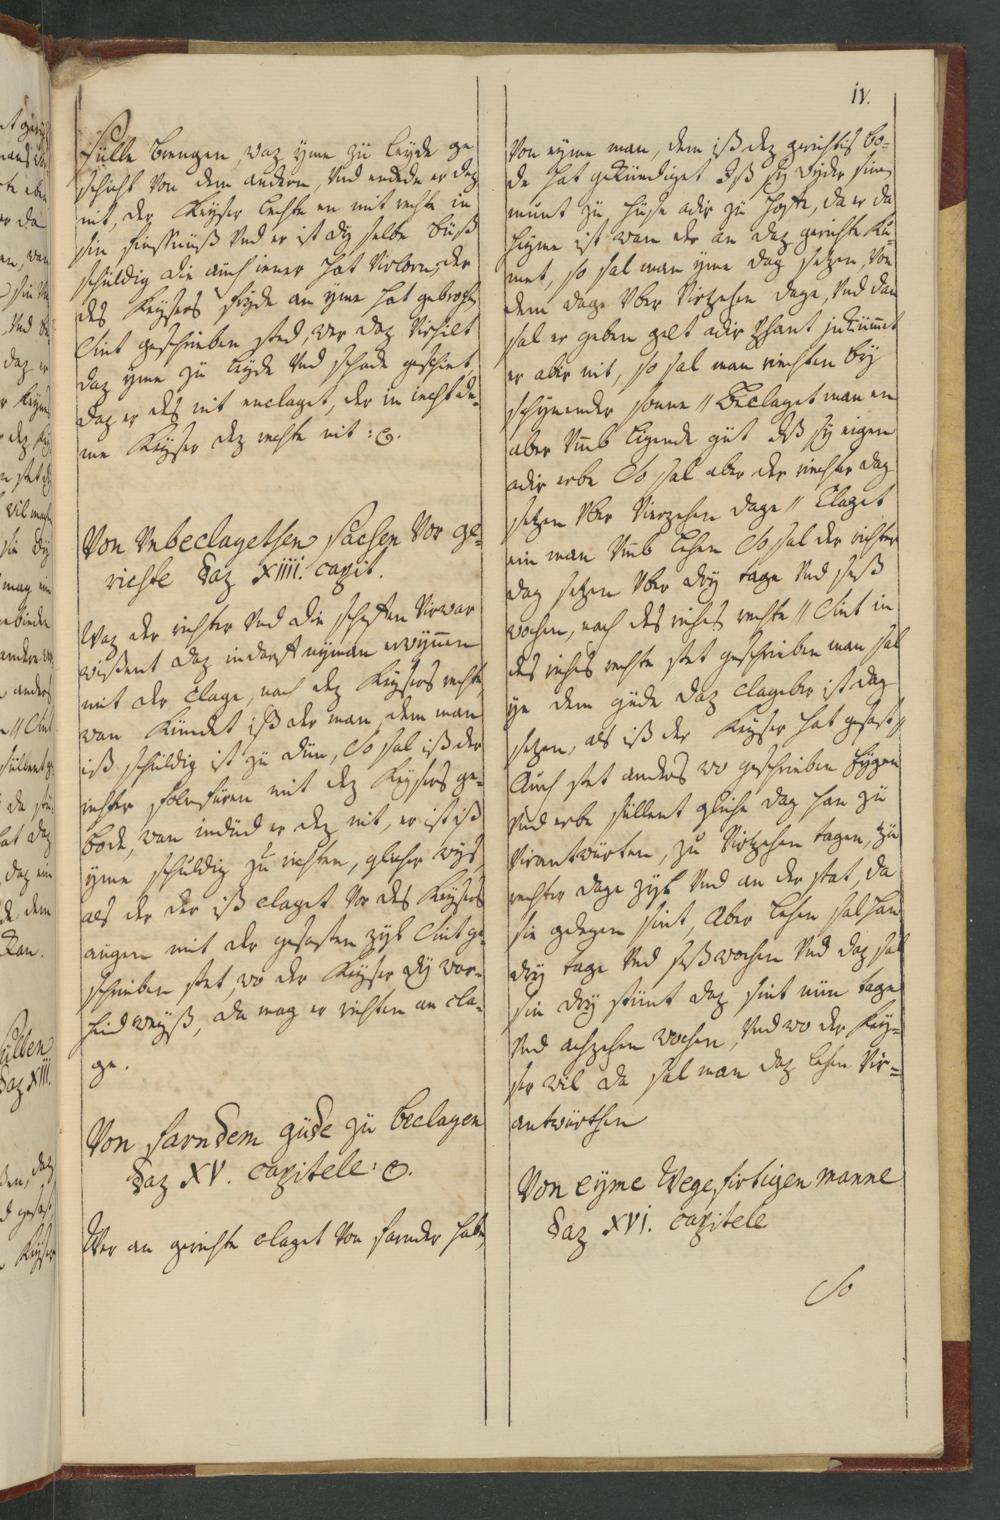 iv.
sülle brengen, waz yme zü leyde ge
schicht von dem andern, Vnd endede er dez
nit, der Keyser lechte en mit rechte in
sin Vnd er ist dy selbe büß
schüldig die auch iener hat virlorn, der
des Keysers fryde an yme hat gebrochen
Sint geschrieben sted, wer daz virhilt
daz yme zü leyde Vnd schade geschiet,
daz er des nit enclaget, der in
me Keyser dez rechte nit :
Von Vnbeclagethen sachen Vor ge-
richte daz XIIII. capit.
Waz der richter Vnd die scheffen Virwar
wißent daz indarff nyman erzügen
mit der clage, nach dez Keysers rechte,
wan kündet iß der man, dem man
iß schüldig ist zü dün, So sal iß der
richter mit dez Keysers ge-
bode, wan indüd er dez nit, er ist iß
yme schüldig zu richten, glicher wys
als der der iß claget vor des Keysers
augen mit der gesasten zyt Sint ge-
schrieben stet, wo der Keyser dy war-
heid weyß, da mag er richten an cla-
ge.
Von farndem güde zü beclagen
daz XV. capitele :
Wer an gerichte claget Von farnder habe,
Von eyme man, dem iß dez gerichtes bo-
de hat gekündiget ıß sy wyder sinen
munt zü huse adir zü hoffe, da er da
heyme ist wan er an daz gerichte kü-
met, so sal man yme dag setzen, von
dem dage Vber Virtzehen dage, Vnd dan
sal er geben gelt adir phant inkümmt
er aber nit, so sal man richten by
schynender sonne // Beclaget man en
aber Vmb ligende güt ıß sy eigen
adir erbe So sal aber der richter dag
setzen Vber Vierzehen dage // Claget
ein man Vmb lehen So sal der richter
dag setzen Vber dry tage Vnd seß
wochen, nach des riches rechte // Sint in
des riches rechte stet geschrieben man sal
ye dem güde daz clageber ist dag
setzen, als iß der Keyser hat gesast //
Auch stet anders wo geschrieben Eygen
Vnd erbe süllent gliche dag han zü
Virantwürten, zu Virtzehen tagen, zü
rechter dage zyt Vnd an der stat, da
sie gelegen sint, Aber lehen sal han
dry tage Vnd seß wochen Vnd daz sal
sin dry stünt daz sint nün tage
Vnd achzehen wochen, Vnd wo der Key-
ser wil da sal man daz lehen Vir-
antwürthen
Von eyme Wegefirtigen manne
daz XVI. capitele
So